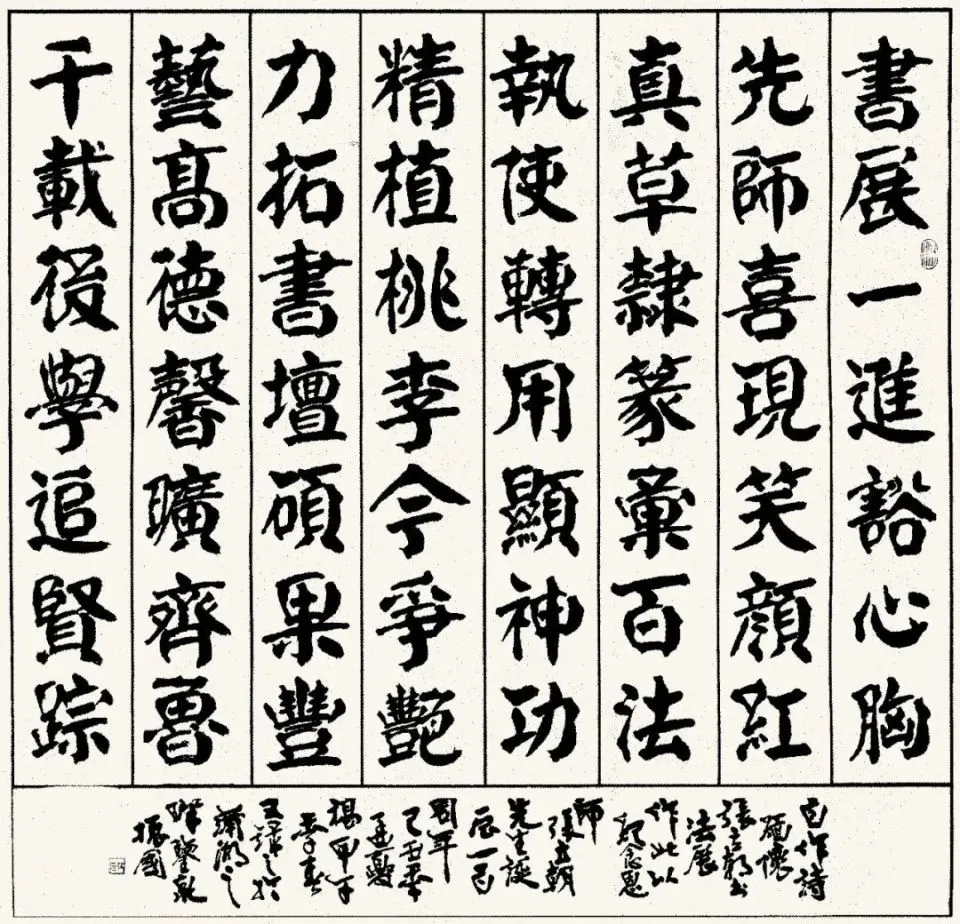 書展一進豁心胸
先師喜現笑顏紅
真草隸篆彙百法
執使轉用顯神功
精植桃李今爭艷
力拓書壇碩果豐
藝高德馨曠齊魯
千載後學追賢踪
自作詩
緬懷
張立朝書
法展
作此以
師
張立朝
先生誕
辰一百
周年
振國